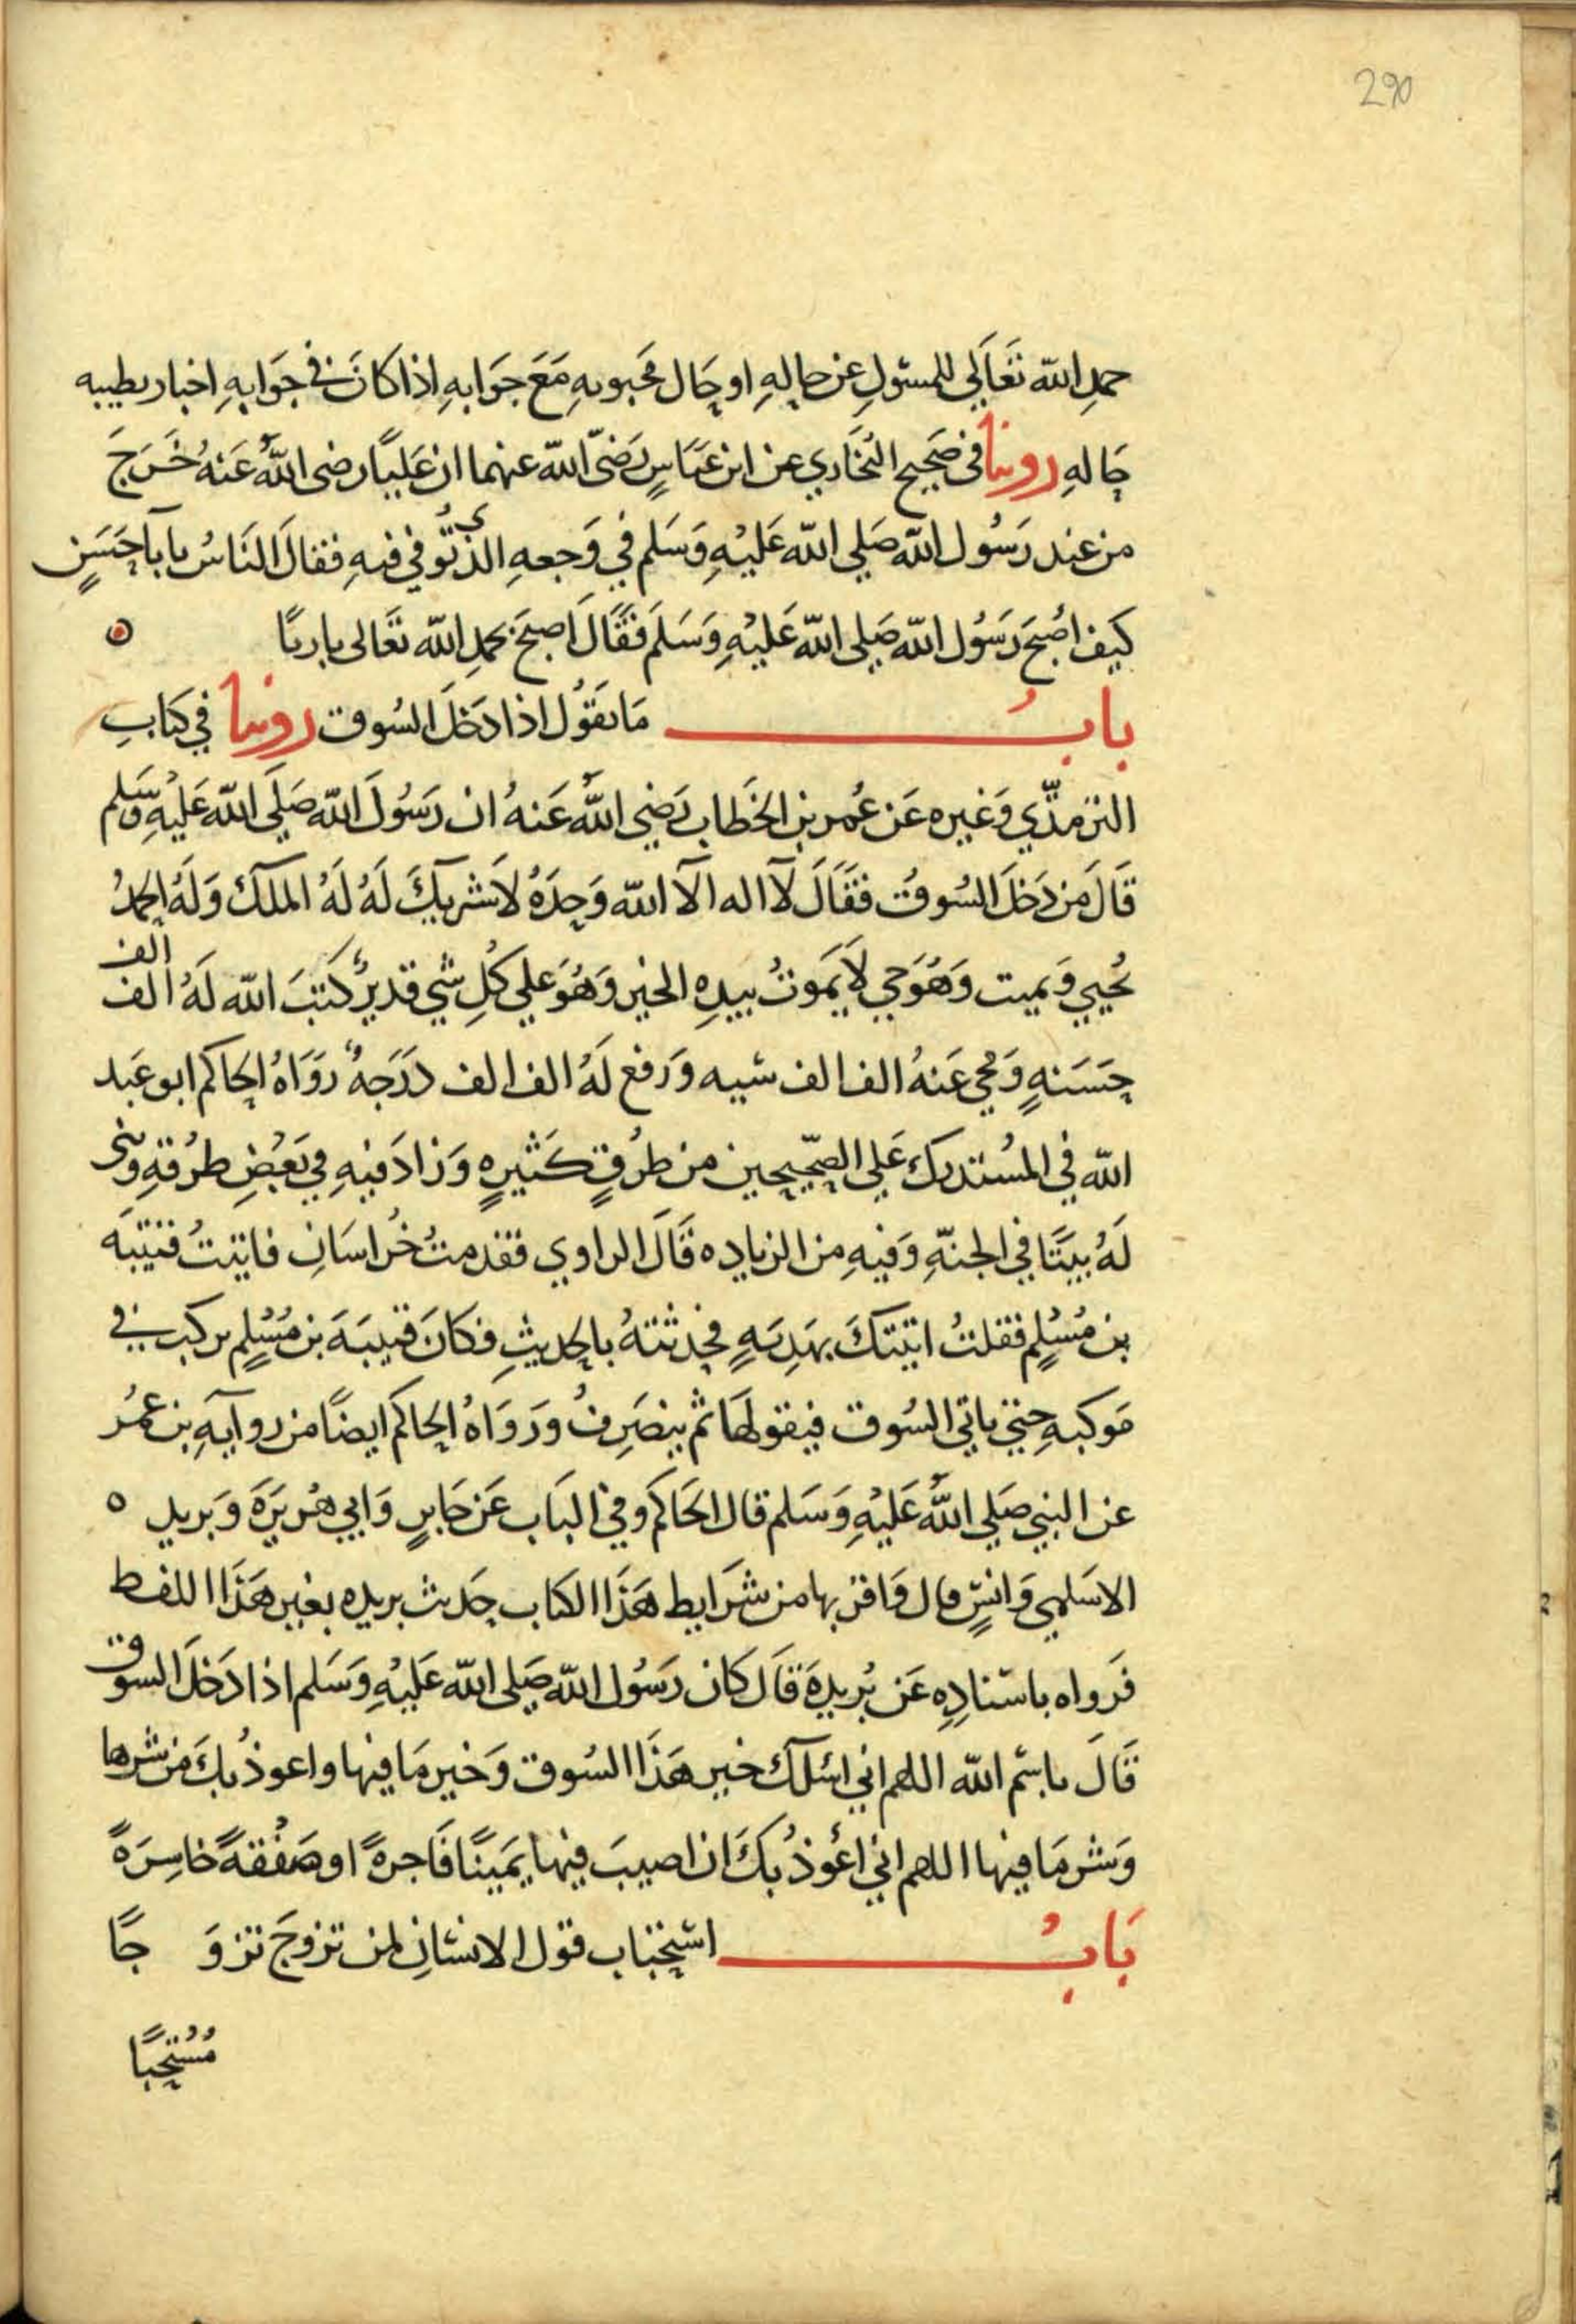 290
حمدِ الله تَعَالَي للمسئولِ عن حالِهِ او حَال مَحبوبهِ مَعَ جَوَابهِ اذا كانَ في جوَابهِ اخبار بطيبه
حَالهِ روينا في صَحِيح البُخَاري عن ابن عبَّاسٍ رَضيَ الله عنهما ان عَليًّا رضى اللهُ عَنهُ خَرَجَ
من عند رَسُول الله صَلي الله عَليْهِ وَسَلم في وَجعهِ الذي تُوُفي فيهِ فقالَ النَاسُ يا أبا حَسَنٍ
كيف اصْبحَ رَسُول الله صَلى الله عَليْهِ وَسَلمَ فَقَالَ اَصبحَ بحمدِ الله تعَالى باريًا
بابُ مَا يَقوُل اذا دَخلَ السُوق روينا في كتابِ
الترمذّي وَغيره عَن عُمر بن الخَطاب رَضي اللهُ عَنهُ ان رَسُولَ الله صَلَي الله عَليْهِ وَسَلم
قَالَ مَن دَخلَ السُوقَ فقَالَ لاَ اله الاَ الله وَحدَهُ لاَ شريكَ لَهُ لَهُ الملك وَلَهُ الحمدُ
يُحيي وَيميت وَهُوَ حي لاَ يَموتُ بيدِهِ الخير وَهُوَ علي كلِ شي قديرٌ كتَبَ الله لَهُ الف الف
حَسَنهٍ وَمحي عَنهُ الف الف سيه وَرفع لَهُ الف الف دَرَجهٌ رَوَاهُ الحاكم ابو عَبد
الله في المسُتدرك عَلي الصّحيحين من طرُقٍ كثيرهٍ وَزادَ فيهِ في بَعضِ طرُقهِ وبنى
لَهُ بيتًا في الجنّهِ وَفيهِ من الزياده قَالَ الراوي فقدمتُ خُراسَانِ فاتيتُ قتيبَه
بن مُسْلِم فقلتُ اتيتكَ بهَدِيَهٍ فحدثتهُ بالحديثِ فكانَ قتيبَهَ بن مُسْلِم يركب في
مَوكبهِ حتي ياتي السُوق فيقولهَا ثم ينصَرِفُ وَرَوَاهُ الحاكم ايضًا من روايَهِ بن عمُر
عن النبي صَلي اللهُ عَليْهِ وَسَلم قال الحَاكم وفي البَاب عَن جَابرٍ وَابي هُريَرَهَ وَبريد
الاسَلمي وَانسٍّ قال وَاقربها من شرَايط هَذَا الكتاب حَديث بريده بغير هَذَا اللفط
فَرواه باسْنادِهِ عَن بُريدهَ قَال كان رَسُول الله صَلى الله عَليْهِ وَسَلم اذا دَخلَ السوق
قَالَ باسْم الله اللهم اني اسَلك خير هَذا السُوق وَخير مَا فيها واعوذُ بكَ من شرها
وَشر مَا فيها اللهم اني اعُوذُ بكَ ان اصيبَ فيها يَمَينًا فَاجرهً او صَفْقهً خاسِرَهً
بَابُ اسْتحْبَاب قول الانسَانِ لمن تزوجَ تزوَ جًا
مُسْتحبًا